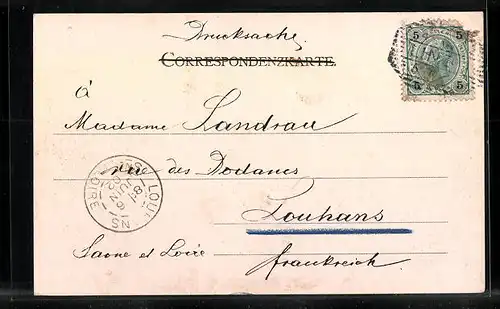 Drucksache
CORRESPONDENZKARTE.
5 5
5 5
à
Madame Landrau
rue des Dodanes
Louhans
Saone et Loire
Frankreich.
LOUHANS
JUIN
LOIRE